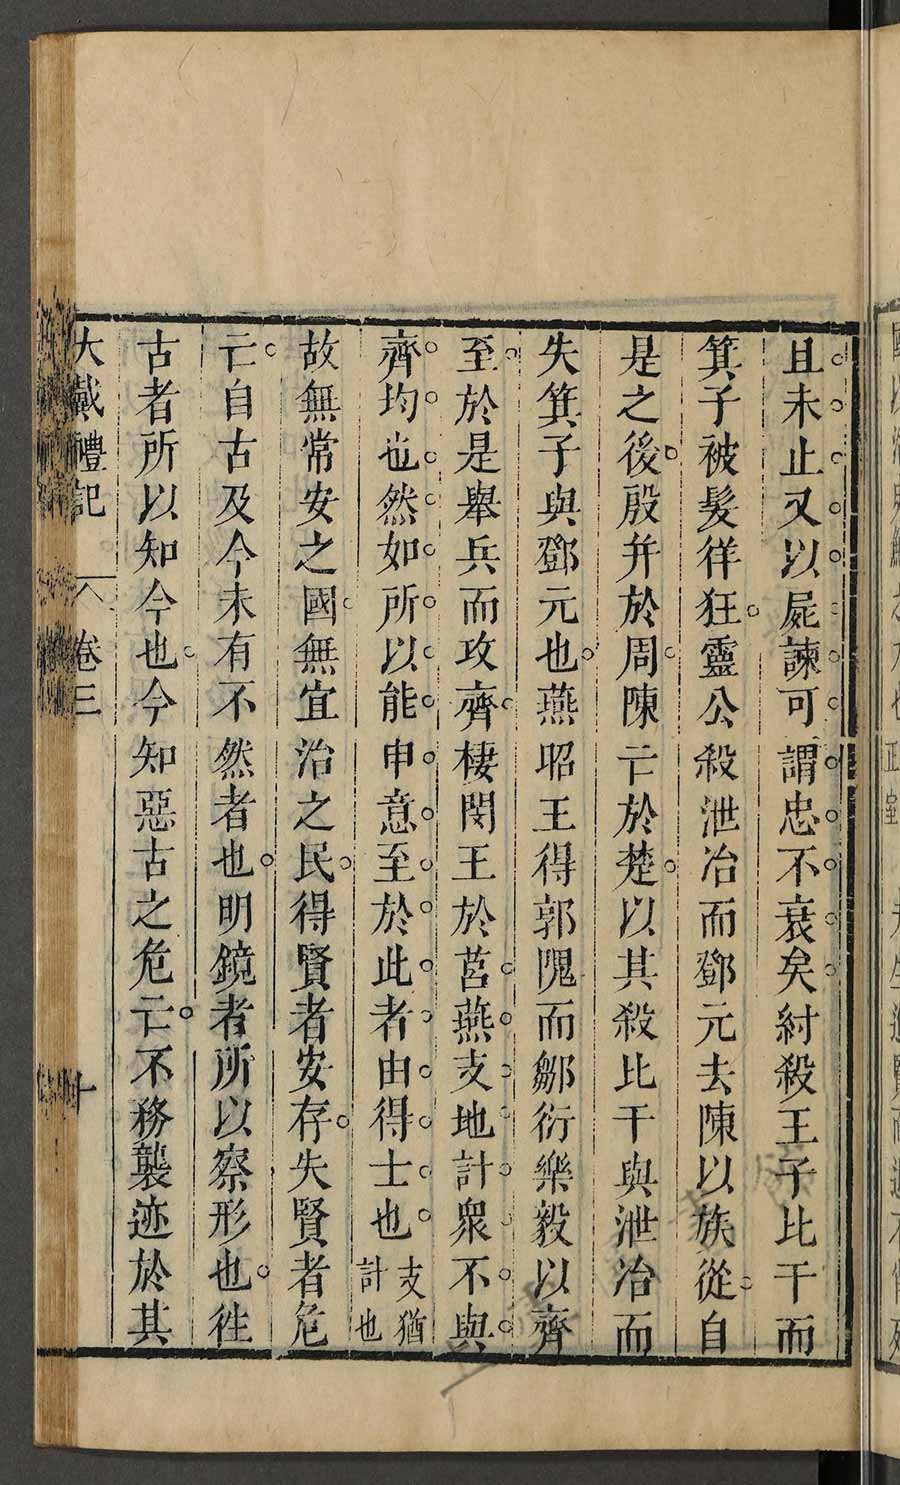 且未止又以屍諫可謂忠不衰矣紂殺王子比干而
箕子被髮徉狂靈公殺泄冶而鄧元去陳以族從自
是之後殷并於周陳亡於楚以其殺比干與泄冶而
失箕子與鄧元也燕昭王得郭隗而鄒衍樂毅以齊
至於是舉兵而攻齊棲閔王於莒燕支地計衆不與
齊均也然如所以能申意至於此者由得士也支猶計也
故無常安之國無宜治之民得賢者安存失賢者危
亡自古及今未有不然者也明鏡者所以察形也徃
古者所以知今也今知惡古之危亡不務襲迹於其
大戴禮記 卷三 十